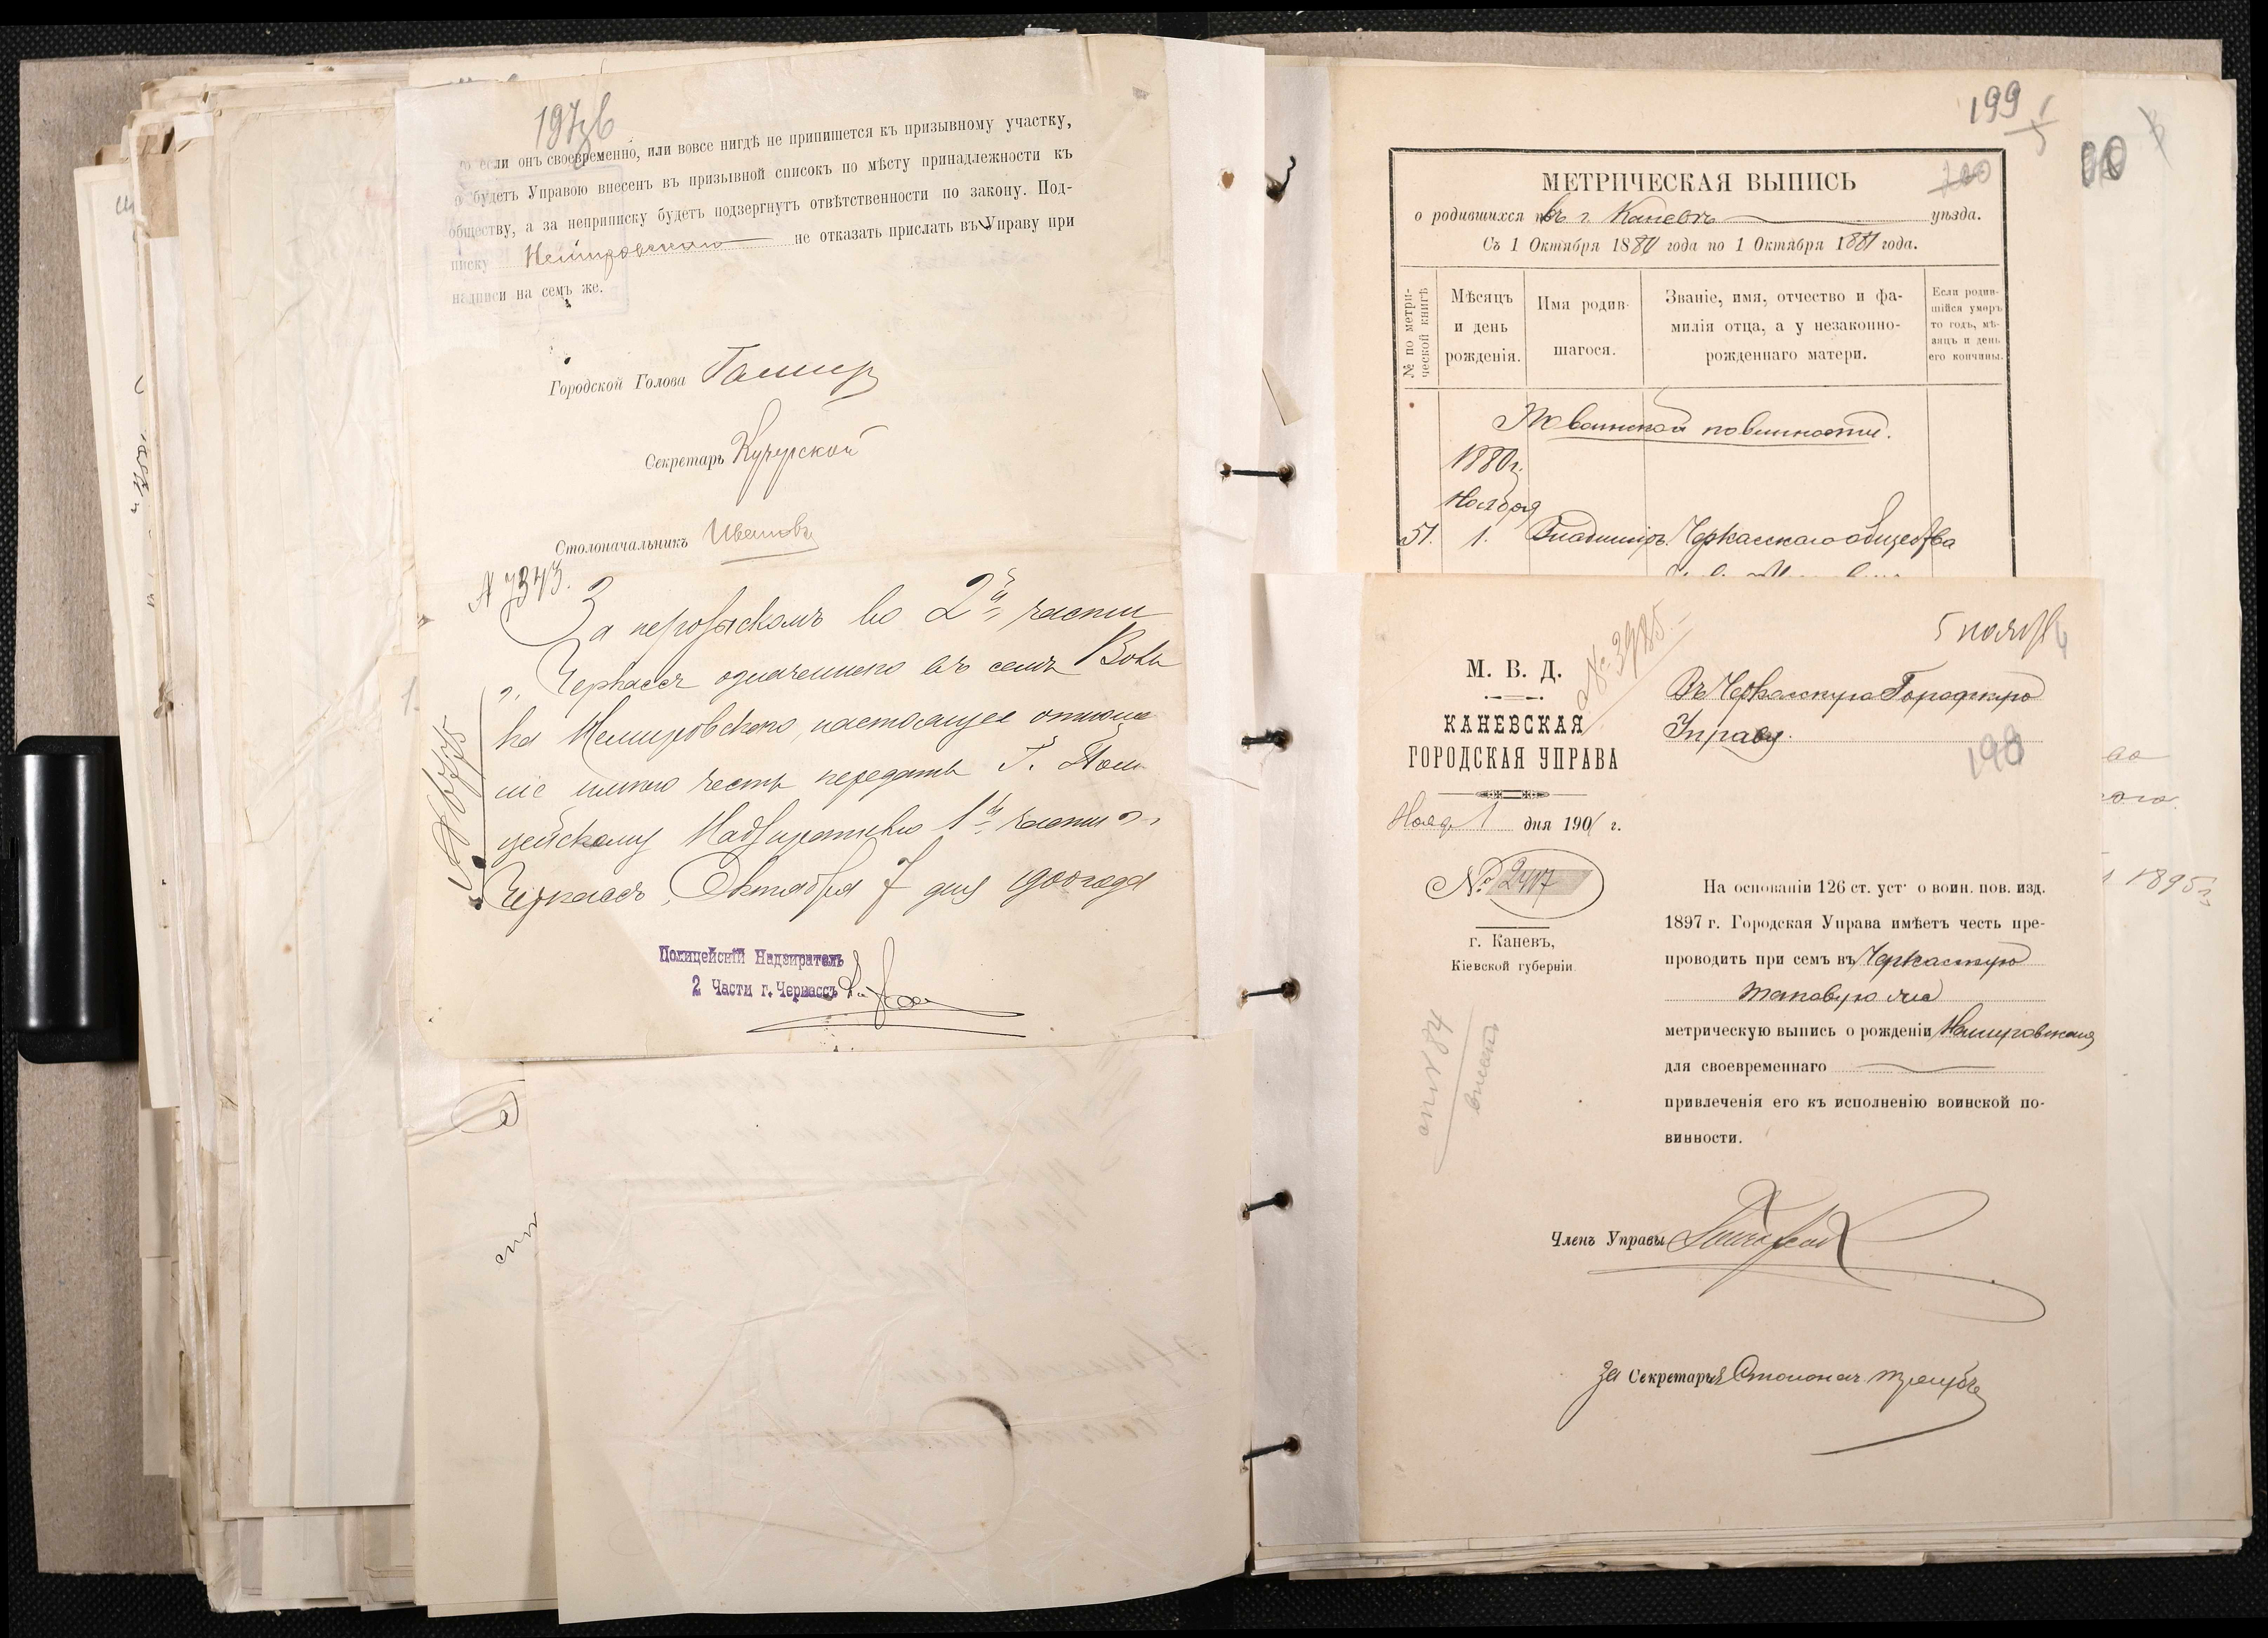 197зв
если онъ своевременно, или вовсе нигдѣ не припишется къ призывному участку,
будетъ Управою внесенъ въ призывной списокъ по мѣсту принадлежности къ
обществу, а за неприписку будетъ подвергнутъ отвѣтственности по закону. Под-
писку Немировскаго не отказать прислать въ Управу при
надписи на семъ же.
Городской Голова
Секретарь
Столоначальникъ Ивановъ
№ 7343.
За неровыскомъ во 2й части
г. Черкассъ означеннаго въ семъ Вол
ка Немировскаго, настоящее отноше
ніе имѣю честь передать Г. Поли
цейскому Надзирателю 1й части г.
Черкассъ, Октября 7 дня 1900 года
Полицейскій Надзиратель
2 Части г. Черкассъ
199
200
МЕТРИЧЕСКАЯ ВЫПИСЬ
о родившихся въ г. Каневѣ уѣзда.
Съ 1 Октября 1880 года по 1 Октября 1881 года.
№ по метри-
ческой книгѣ
Мѣсяцъ
и день
рожденія.
Имя родив-
шагося.
Званіе, имя, отчество и фа-
милія отца, а у незаконно-
рожденнаго матери.
Если родив-
шійся умеръ
то годъ, мѣ-
сяцъ и день
его кончины.
По воинской повинности.
1880 г.
Ноября
51. 1. Владиміръ Черкасскаго общества
5 ноября
№ 3985.
М. В. Д.
КАНЕВСКАЯ
ГОРОДСКАЯ УПРАВА
Нояб. 1 дня 1901 г.
№ 2417
г. Каневъ,
Кіевской губерніи.
Въ Черкасскую Городскую
Управу.
198
На основаніи 126 ст. уст. о воин. пов. изд.
1897 г. Городская Управа имѣетъ честь пре-
проводить при семъ въ Черкасскую
таковую же
метрическую выпись о рожденіи Немировскаго
для своевременнаго
привлеченія его къ исполненію воинской по-
винности.
Членъ Управы
За Секретаря Столонач.
1895 г.